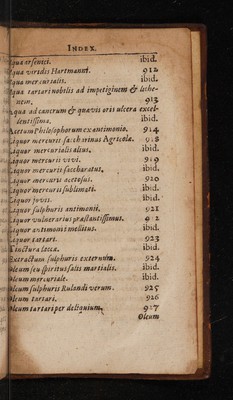 INDEX.
Aqua arsenici. ibid.
Aqua viridis Hartmanni. 912
Aqua mercurialis. ibid.
Aqua tartari nobilis ad impetiginem & liche-
nem. 913
Aqua ad cancrum & quævis oris ulcera excel-
lentissima. ibid.
Acetum Philosophorum ex antimonio. 914
Liquor mercurii saccharinus Agricolæ. 918
Liquor mercurialis alius. ibid.
Liquor mercurii vivi. 919
Liquor mercurii saccharatus. ibid.
Liquor mercurii acetosus. 920
Liquor mercurii sublimati. ibid.
Liquor jovis. ibid.
Liquor sulphuris antimonii. 921
Liquor vulnerarius præstantissimus. 922
Liquor antimonii mellitus. ibid.
Liquor tartari. 923
Tinctura ibid.
Extractum sulphuris externum. 924
Oleum seu spiritus salis martialis. ibid.
Oleum mercuriale. ibid.
Oleum sulphuris Rulandi verum. 925
Oleum tartari. 926
Oleum tartari per deliquium. 927
Oleum